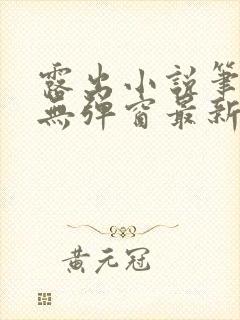 露出小說筆
無彈窗最新
黃元冠